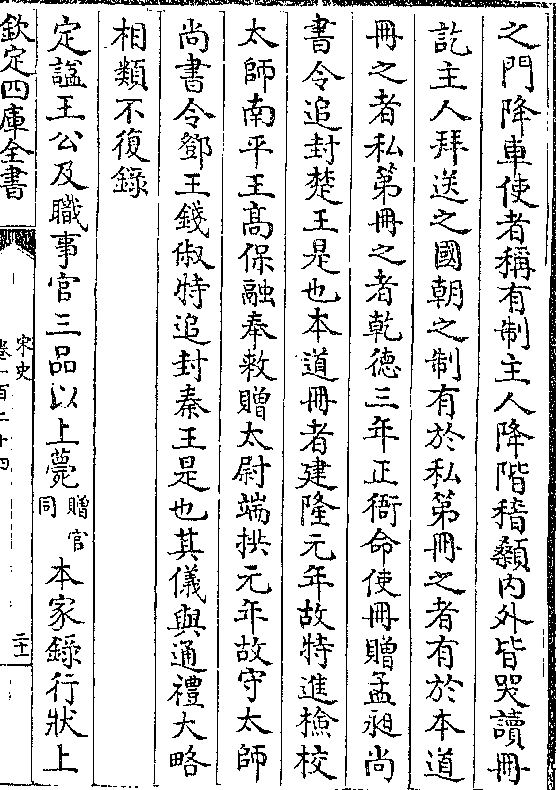 之門降車使者稱有制主人降階稽顙内外皆哭讀冊
訖主人拜送之國朝之制有於私第冊之者有於本道
冊之者私第冊之者乾德三年正衙命使冊贈孟昶尚
書令追封楚王是也本道冊者建隆元年故特進檢校
太師南平王高保融奉敕贈太尉端拱元年故守太師
尚書令鄧王錢俶特追封秦王是也其儀與通禮大略
相類不復錄
定諡王公及職事官三品以上薨贈官同本家錄行狀上
欽定四庫全書
宋史
卷一百二十四
二十一